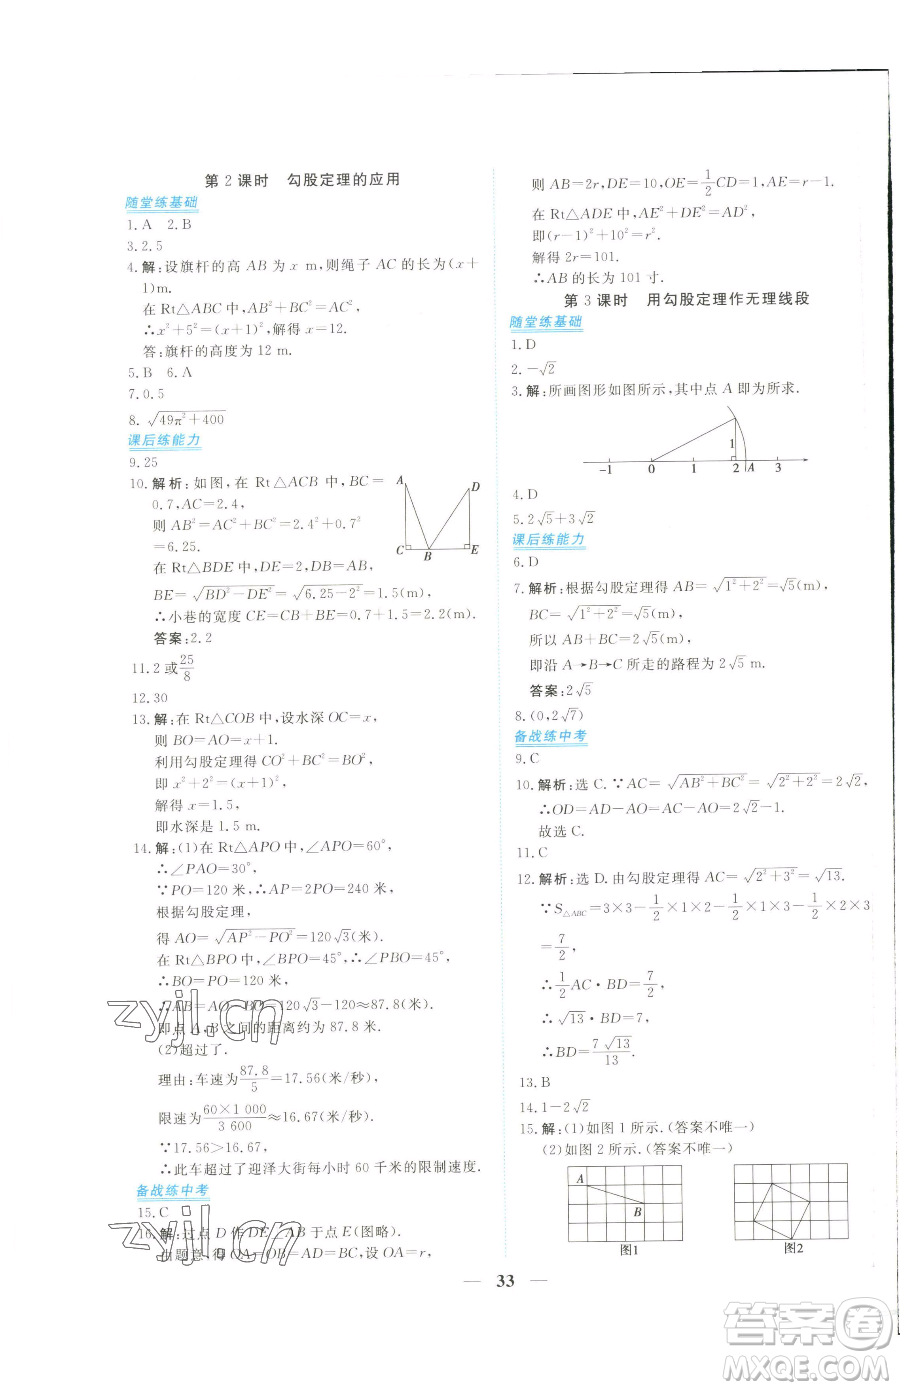 第2课时　勾股定理的应用
随堂练基础
1.A　2.B
3.2.5
4.解:设旗杆的高 AB 为 x m,则绳子 AC 的长为(x+
1)m.
在 Rt△ABC 中,AB²+BC²=AC²,
∴x²+5²=(x+1)²,解得 x=12.
答:旗杆的高度为 12 m.
5.B　6.A
7.0.5
8.√(49π²+400)
课后练能力
9.25
10.解析:如图,在 Rt△ACB 中,BC=
0.7,AC=2.4,
则 AB²=AC²+BC²=2.4²+0.7²
=6.25.
在 Rt△BDE 中,DE=2,DB=AB,
BE=√(BD²-DE²)=√(6.25-2²)=1.5(m)
∴小巷的宽度 CE=CB+BE=0.7+1.5=2.2(m).
答案:2.2
A
D
C
B
E
11.2或25/8
12.30
13.解:在 Rt△COB 中,设水深 OC=x,
则 BO=AO=x+1.
利用勾股定理得 CO²+BC²=BO²,
即 x²+2²=(x+1)².
解得 x=1.5,
即水深是 1.5 m.
14.解:(1)在 Rt△APO 中,∠APO=60°,
∴∠PAO=30°,
∵PO=120 米,∴AP=2PO=240 米,
根据勾股定理,
得 AO=√(AP²-PO²)=120√3(米).
在 Rt△BPO 中,∠BPO=45°,∠PBO=45°,
∴BO=PO=120 米,
∴AB=AO-BO=120√3-120≈87.8(米)
即点 A,B 之间的距离约为 87.8 米.
(2)超过了.
理由:车速为87.8/5=17.56(米/秒),
限速为(60×1 000)/(3 600)≈16.67(米/秒).
∵17.56>16.67,
∴此车超过了迎泽大街每小时 60 千米的限制速度.
备战练中考
15.C
16.解:过点 D 作 DE⊥AB 于点 E(图略).
由题意,得 OA=OB=AD=BC,设 OA=r,
则 AB=2r,DE=10,OE=1/2CD=1,AE=r-1.
在 Rt△ADE 中,AE²+DE²=AD²,
即(r-1)²+10²=r².
解得 2r=101.
∴AB 的长为 101 寸.
第3课时　用勾股定理作无理线段
随堂练基础
1.D
2.-√2
3.解:所画图形如图所示,其中点 A 即为所求.
1
-1　0　1　2　A　3
4.D
5.2√5+3√2
课后练能力
6.D
7.解析:根据勾股定理得 AB=√(1²+2²)=√5(m)
BC=√(1²+2²)=√5(m),
所以 AB+BC=2√5(m),
即沿 A→B→C 所走的路程为 2√5 m.
答案:2√5
8.(0,2√7)
备战练中考
9.C
10.解析:选 C.∵AC=√(AB²+BC²)=√(2²+2²)=2√2,
∴OD=AD-AO=AC-AO=2√2-1.
故选 C.
11.C
12.解析:选 D.由勾股定理得 AC=√(2²+3²)=√13.
∵S△ABC=3×3-1/2×1×2-1/2×1×3-1/2×2×3
=7/2,
∴1/2AC·BD=7/2,
∴√13·BD=7,
∴BD=7√13/13.
13.B
14.1-2√2
15.解:(1)如图 1 所示.(答案不唯一)
(2)如图 2 所示.(答案不唯一)
A
B
图1
图2
— 33 —
zyjl.cn
zyjl.cn
答案圈
MXQE.COM